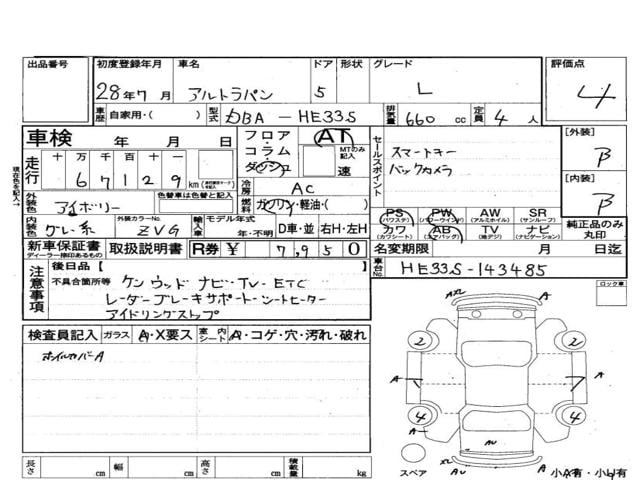 出品番号 初度登録年月 車名 ドア 形状 グレード 評価点
28年7月 アルトラパン 5 L 4
車歴 自家用・( ) 型式 DBA-HE33S 排気量 660 cc 定員 4人
車検 年 月 日 フロア・コラム・ダッシュ AT MTのみ記入 速 セールスポイント スマートキー [外装] B
走行 十 万 千 百 十 一 バックカメラ
67129 km 冷房 AC [内装] B
外装色 アイボリー 色替車は色替と記入 燃料 ガソリン・軽油・( ) PS (パワステ) PW (パワーウインド) AW (アルミホイル) SR (サンルーフ)
内装色 グレー系 外装カラーNo. ZVG 輸入車 モデル年式 年・不明 D車・並 右H・左H カワ (カワシート) AB (エアバッグ) TV (地デジ) ナビ (ナビゲーション) 純正品のみ丸印
新車保証書 ディーラー捺印あるもの 取扱説明書 R券 ¥ 7,950 名変期限 月 日迄
注意事項 後日品【 】 車台No. HE33S-143485
不具合箇所等 ケンウッドナビ・TV・ETC ロック車
レーダーブレーキサポート・シートヒーター
アイドリングストップ
検査員記入 ガラス A・X要ス 室内シート A・コゲ・穴・汚れ・破れ
ホイルカバーA
AXL A
2 2
A A
4 4
A A
AU
スペア AU A 小A有・小U有
長さ cm 幅 cm 高さ cm 積載量 kg